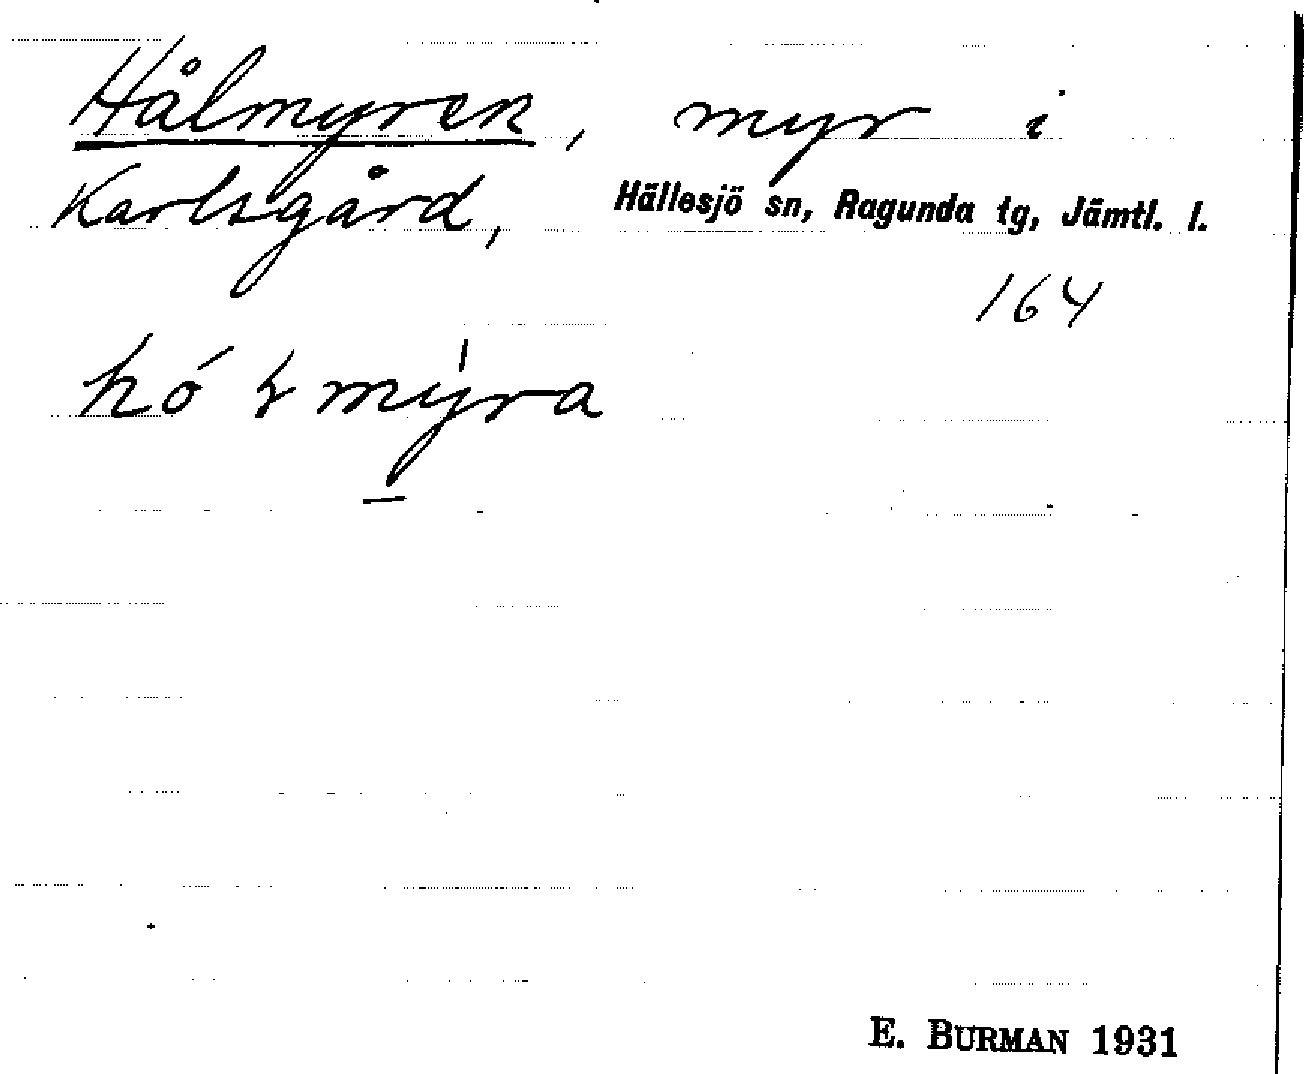 Hålmyren, myr i
Karlsgård, Hällesjö sn, Ragunda tg, Jämtl. l.
164
E. BURMAN 1931